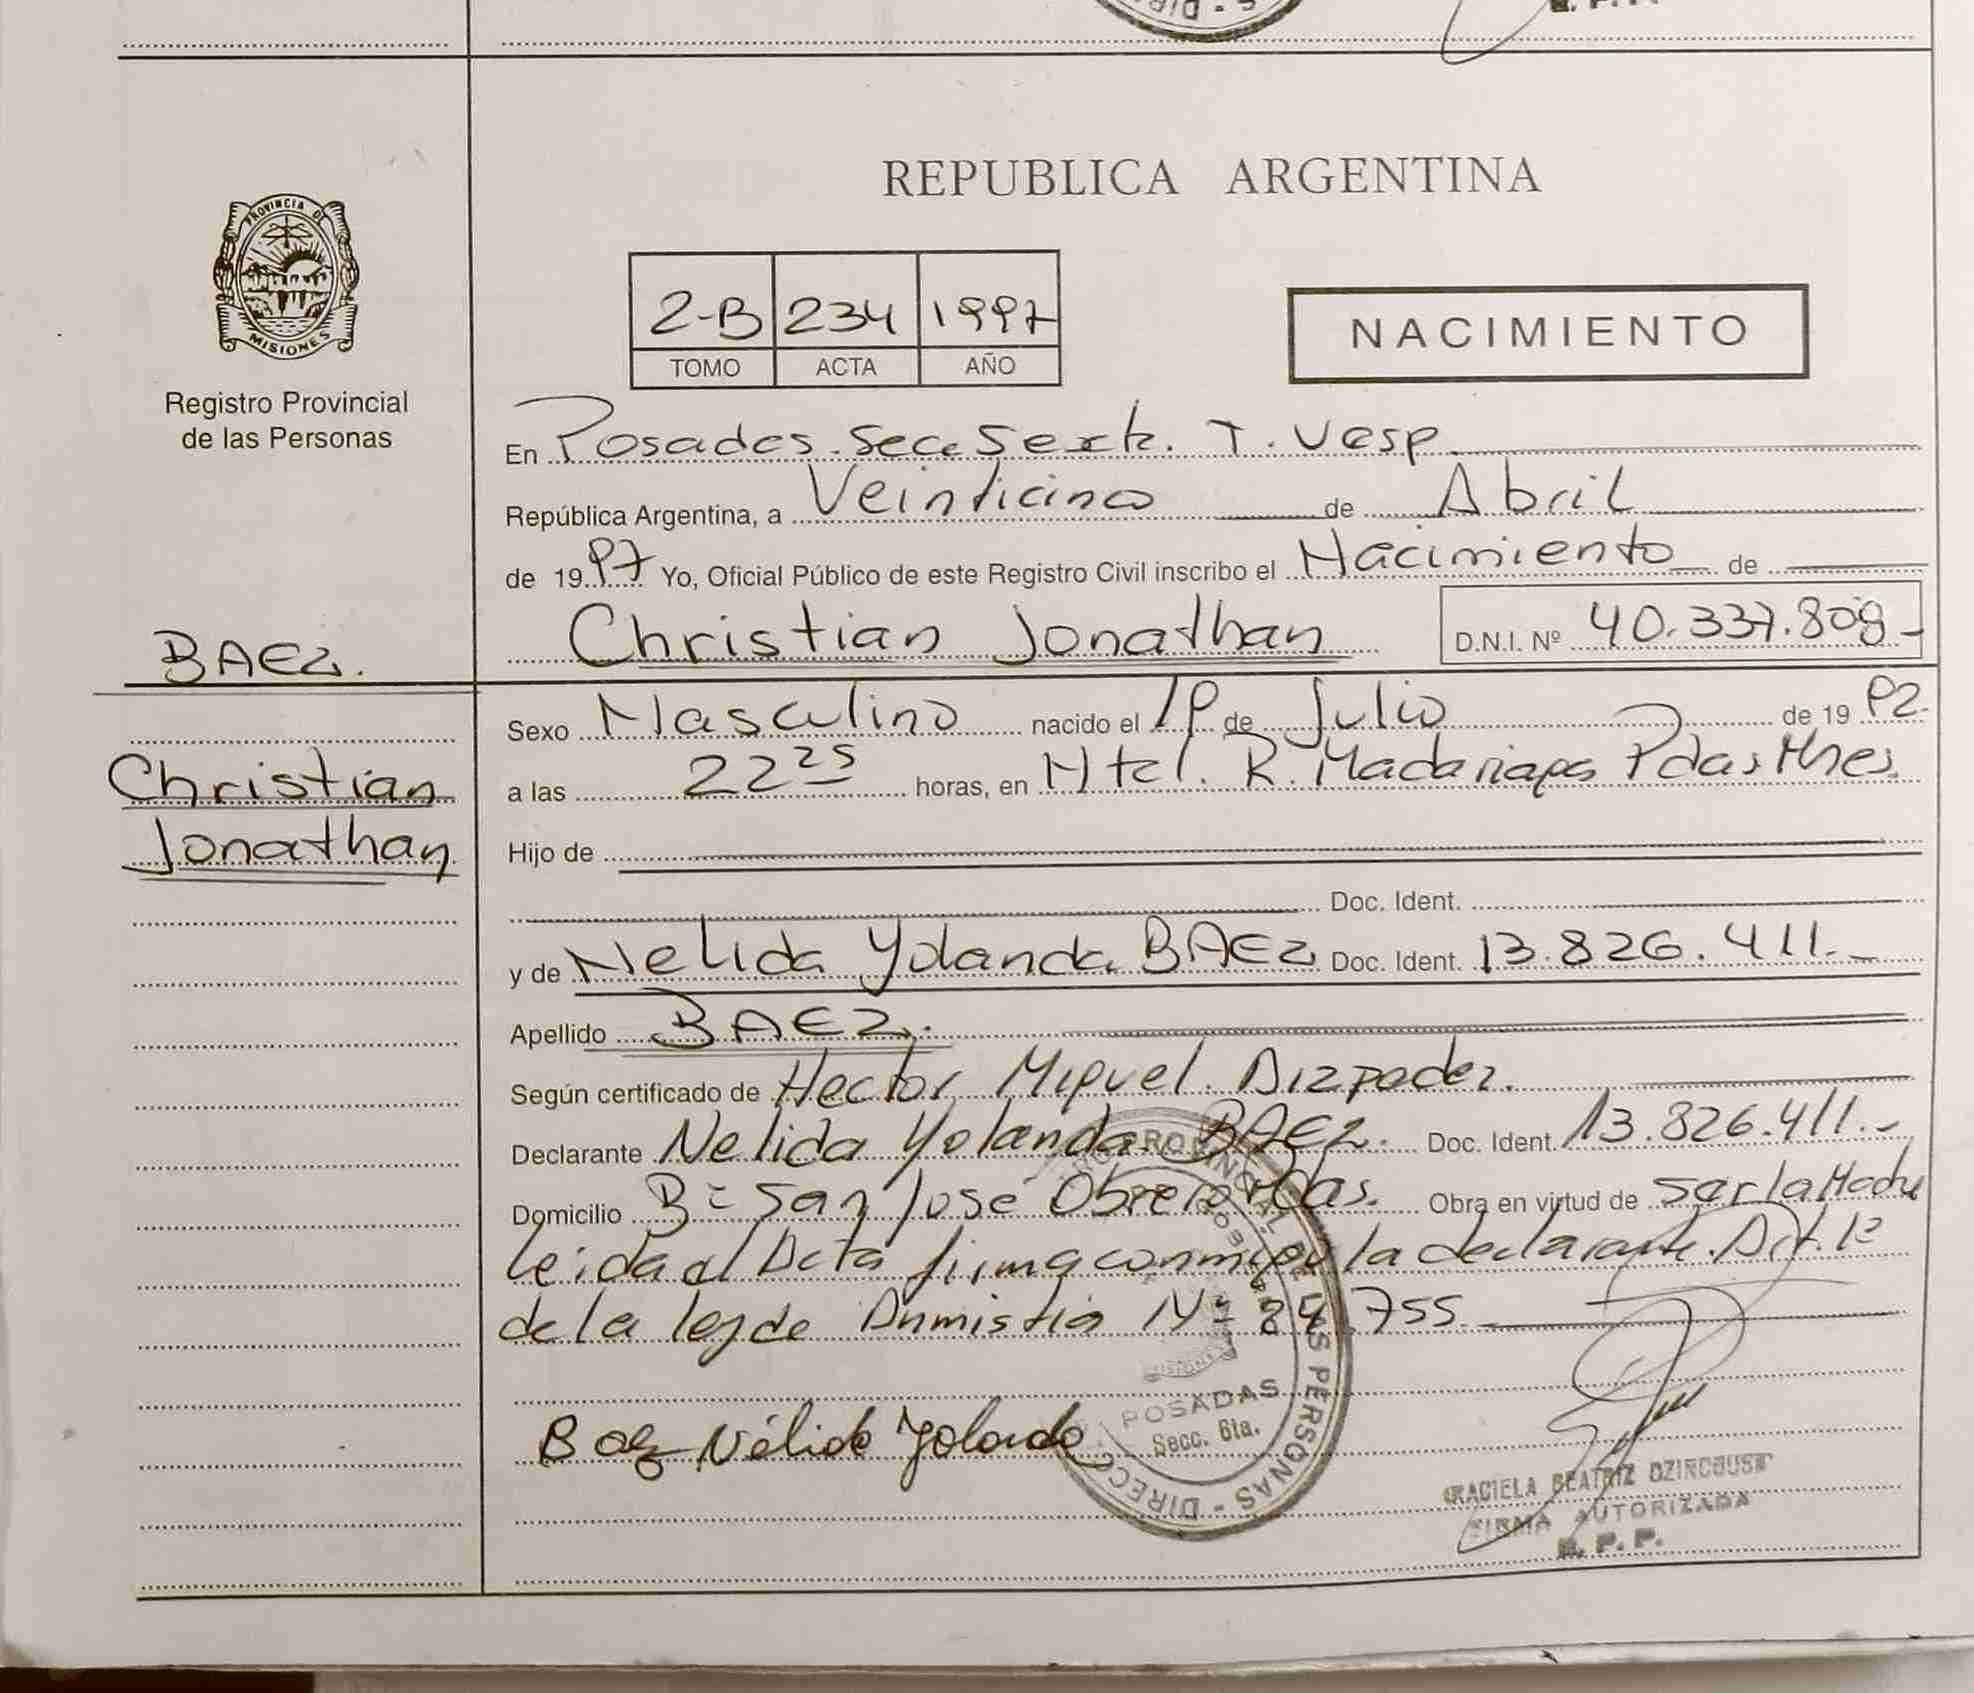 REPUBLICA ARGENTINA
PROVINCIA DE
MISIONES
Registro Provincial
de las Personas
2-B 234 1997
TOMO ACTA AÑO
NACIMIENTO
En Posadas. Secc. Sexta. T. Vesp.
República Argentina, a Veinticinco de Abril
de 1997 Yo, Oficial Público de este Registro Civil inscribo el Nacimiento de
BAEZ.
Christian Jonathan D.N.I. Nº 40.337.808-
Sexo Masculino nacido el 19 de Julio de 1992.
Christian
Jonathan
a las 22 25 horas, en Htal. R. Madariaga Pdas Mnes.
Hijo de
Doc. Ident.
y de Nelida Yolanda BAEZ Doc. Ident. 13.826.411.-
Apellido BAEZ.
Según certificado de Hector Miguel
Declarante Nelida Yolanda BAEZ. Doc. Ident. 13.826.411.-
Domicilio Bº San José Obrero Pdas. Obra en virtud de ser la Madre
leida el Acta firma conmigo la declarante. Art. 1º
de la ley de Anmistia Nº 24.755.
Baez Nélida Yolanda
POSADAS
Secc. 6ta.
PROVINCIAL DE LAS PERSONAS - DIRECC
GRACIELA BEATRIZ
FIRMA AUTORIZADA
R. P. P.